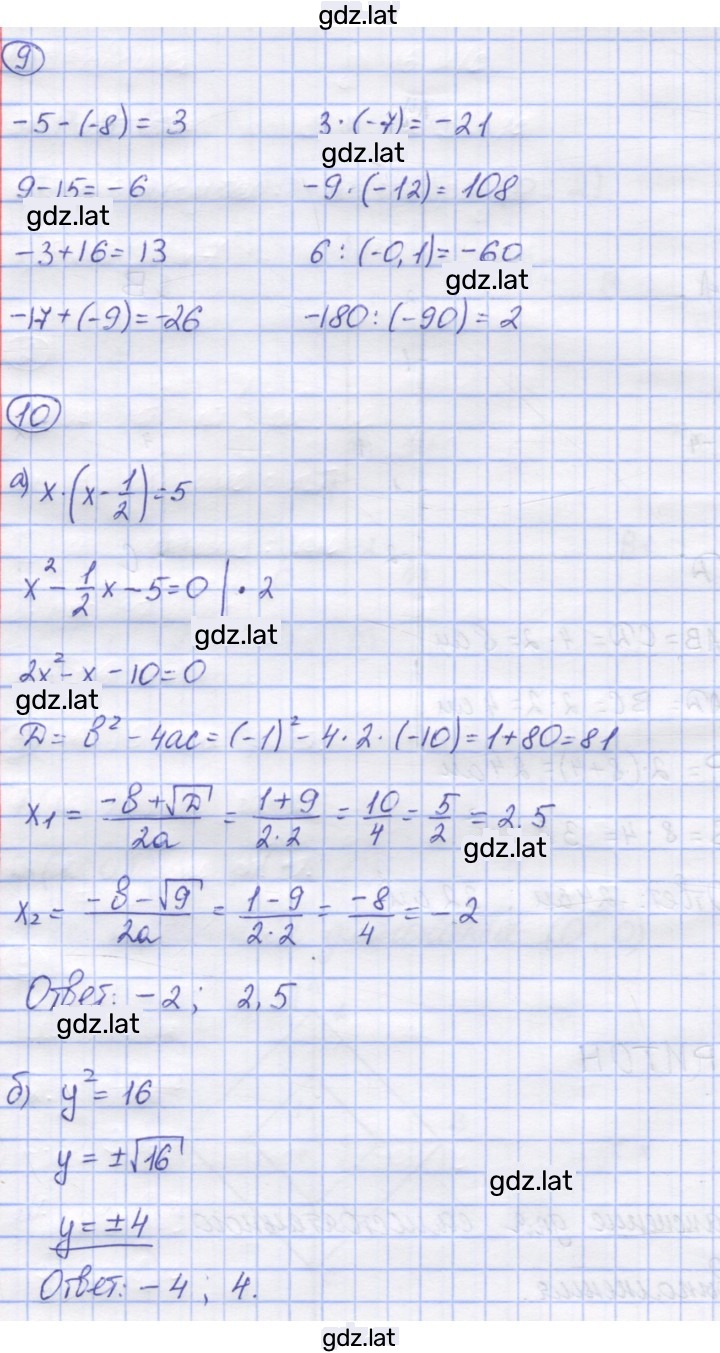 gdz.lat
9
-5-(-8)= 3 3·(-7)= -21
gdz.lat
9-15= -6 -9·(-12)= 108
gdz.lat
-3+16= 13 6:(-0,1)= -60
gdz.lat
-17+(-9)=-26 -180:(-90)= 2
10
а) x·(x-1/2)=5
x²-1/2x-5=0 |·2
gdz.lat
2x²-x-10=0
gdz.lat
Д= в²-4ac=(-1)²-4·2·(-10)=1+80=81
x₁= (-в+√Д)/2a = (1+9)/(2·2) = 10/4 = 5/2 = 2.5
gdz.lat
x₂= (-в-√9)/2a = (1-9)/(2·2) = -8/4 = -2
Ответ: -2; 2,5
gdz.lat
б) y²=16
y=±√16
gdz.lat
y=±4
Ответ: -4; 4.
gdz.lat